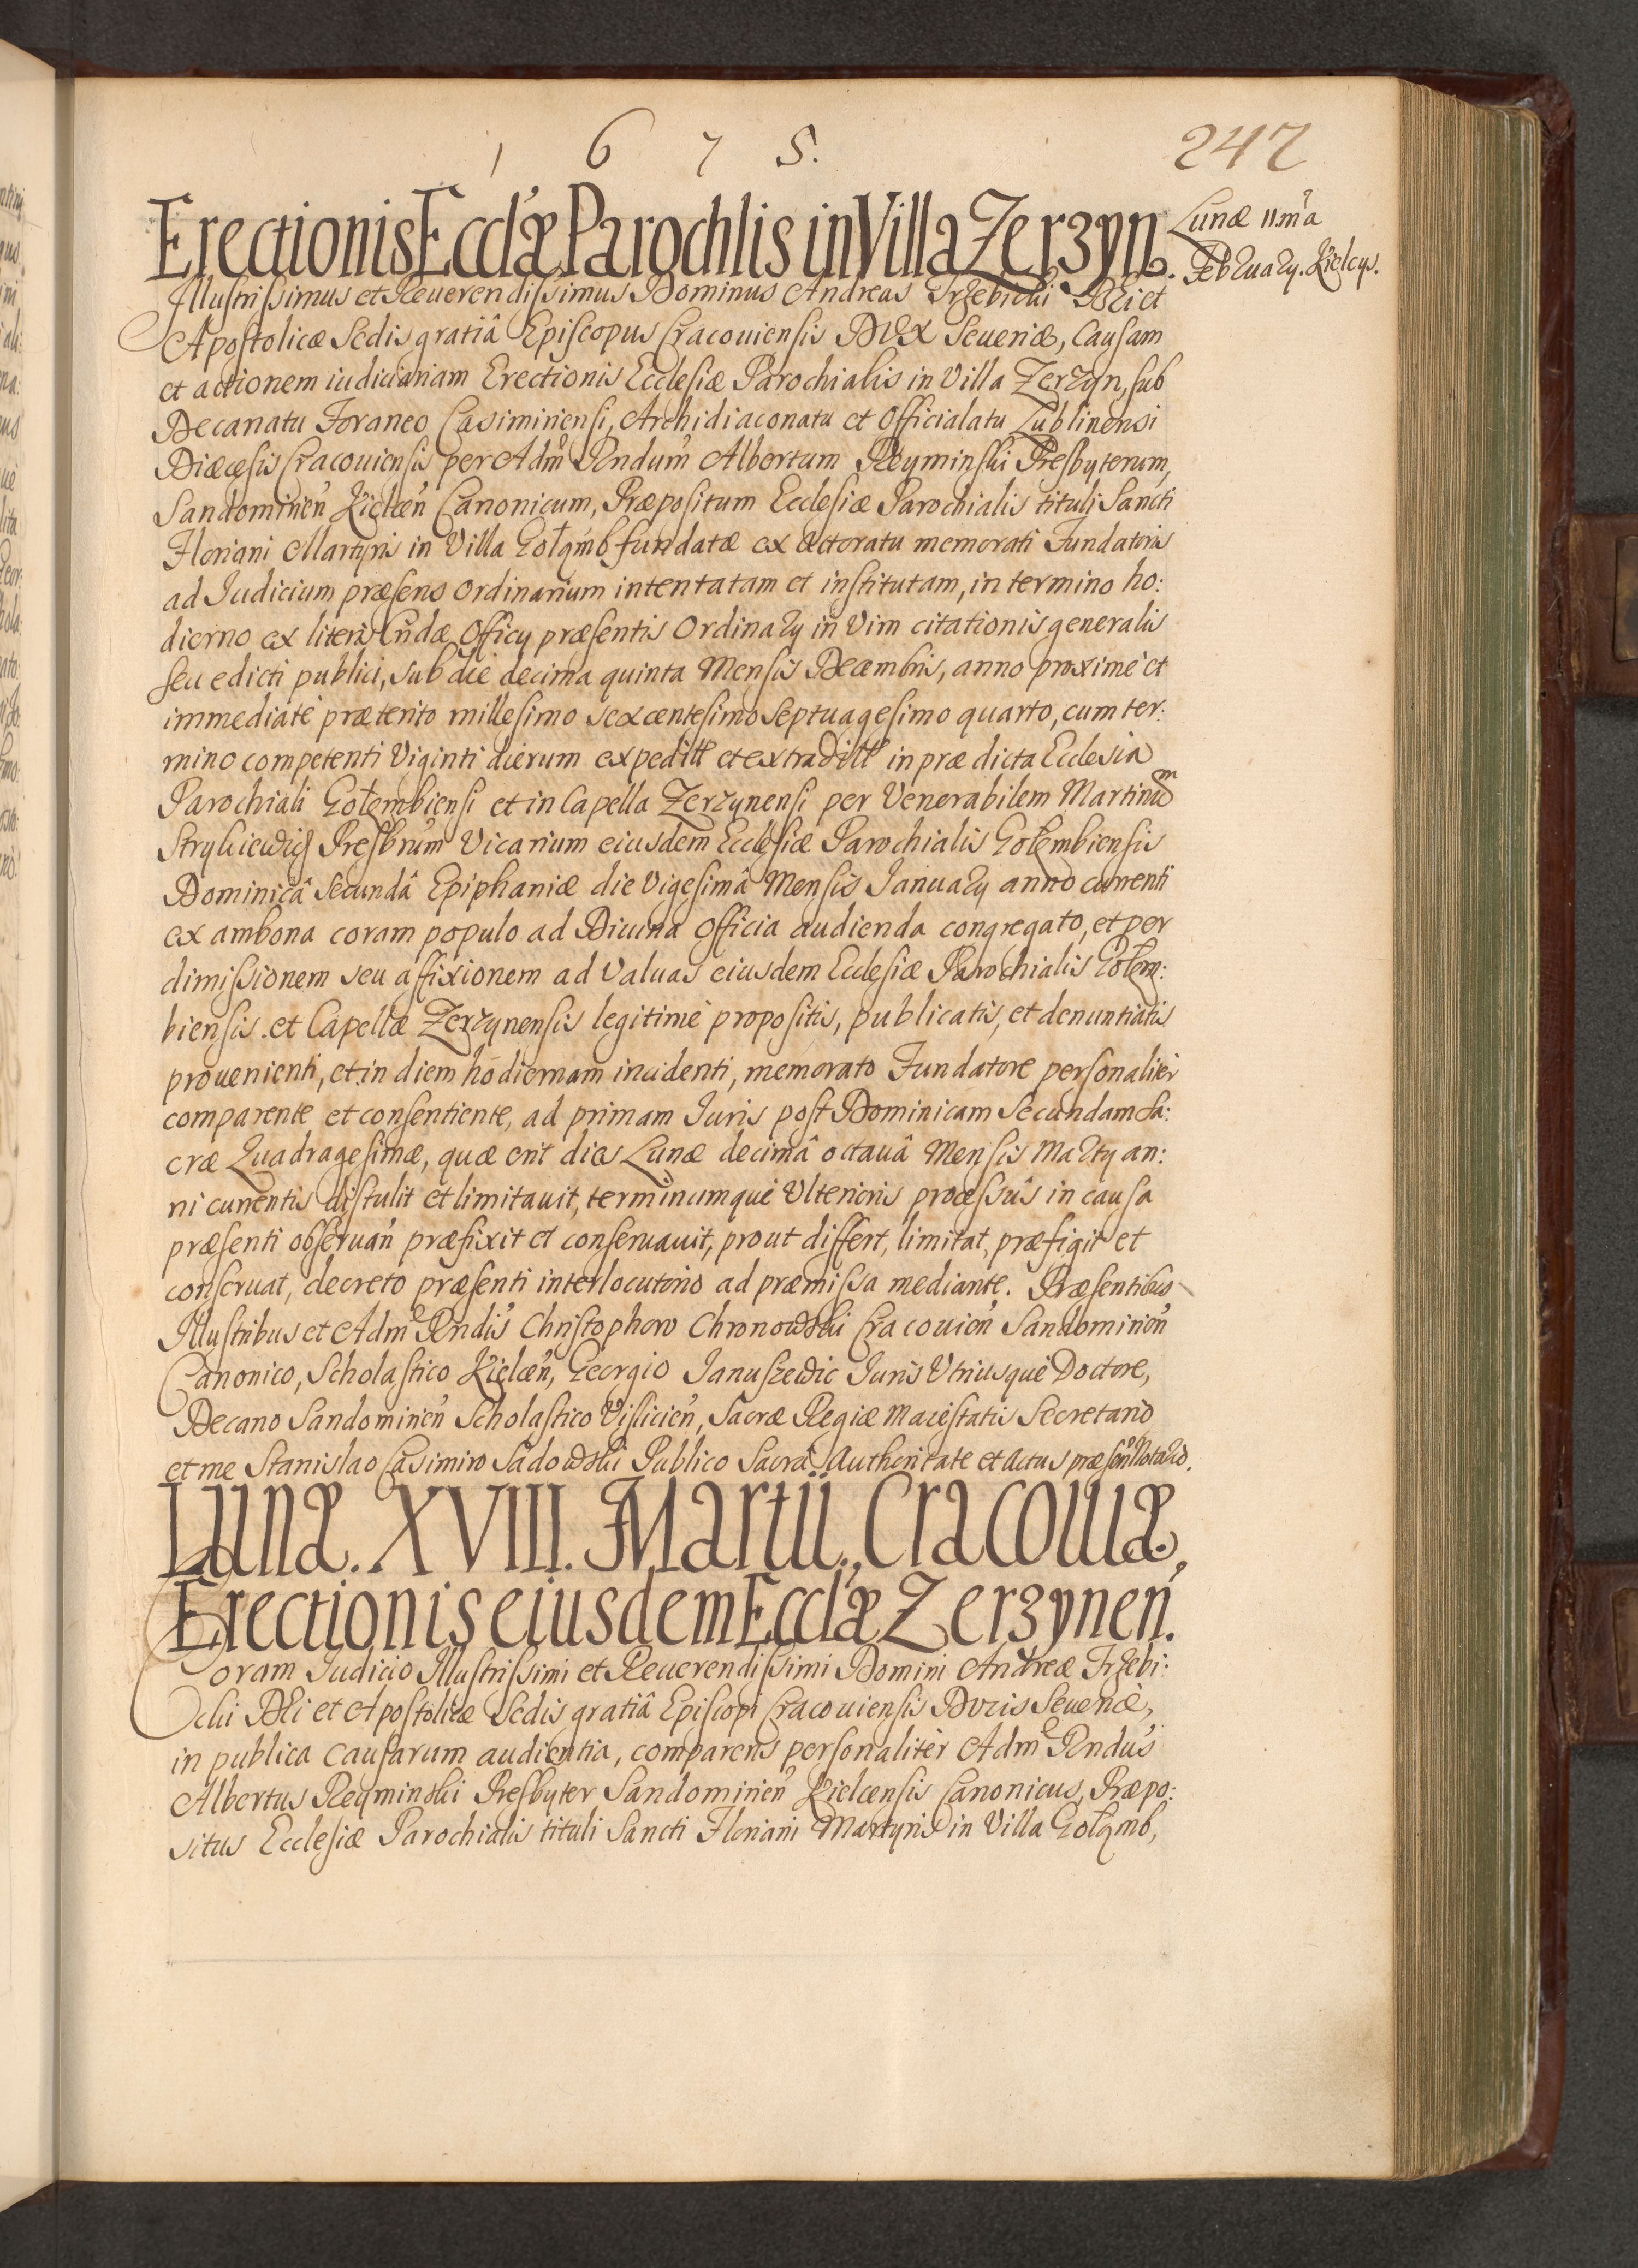 1 6 7 5.
247
Erectionis Eccl'æ Paroch'lis in Villa Zerzyn.
Lunæ 11.m'a
February. Kielcys.
Illustrissimus et Reuerendissimus Dominus Andreas Trzebicki DEI et
Apostolicæ Sedis gratiâ Episcopus Cracouiensis DVX Seueriæ, Causam
et actionem iudiciariam Erectionis Ecclesiæ Parochialis in Villa Zerzyn, sub
Decanatu Foraneo Casimiriensi, Archidiaconatu et Officialatu Lublinensi
Diæcesis Cracouiensis per Adm Rndum Albertum Reyminski Presbyterum,
Sandomirien' Kielcen' Canonicum, Præpositum Ecclesiæ Parochialis tituli Sancti
Floriani Martyris in Villa Gołąmb fundatæ ex actoratu memorati Fundatoris
ad Iudicium præsens Ordinarium intentatam et institutam, in termino ho:
dierno ex literis Cn'dæ Officy præsentis Ordinary in Vim citationis generalis
seu edicti publici, sub die decima quinta Mensis Decembris, anno proximè et
immediatè præterito millesimo sexcentesimo septuagesimo quarto, cum ter:
mino competenti Viginti dierum expedit et extradit in prædicta Ecclesia
Parochiali Gołembiensi et in Capella Zerzynensi per Venerabilem Martinum
Strykiewicz Presbrum Vicarium eiusdem Ecclesiæ Parochialis Gołembiensis
Dominicâ Secundâ Epiphaniæ die Vigesimâ Mensis January anno currenti
ex ambona coram populo ad Diuina Officia audienda congregato, et per
dimissionem seu affixionem ad Valuas eiusdem Ecclesiæ Parochialis Gołem:
biensis et Capellæ Zerzynensis legitimè propositis, publicatis, et denuntiatis
prouenienti, et in diem hodiernam incidenti, memorato Fundatore personaliter
comparente et consentiente, ad primam Iuris post Dominicam Secundam Sa:
cræ Quadragesimæ, quæ erit dies Lunæ decimâ octauâ Mensis Marty an:
ni currentis distulit et limitauit, terminumque Vlterioris processûs in causa
præsenti obseruan' præfixit et conseruauit, prout differt, limitat, præfigit et
conseruat, decreto præsenti interlocutorio ad præmissa mediante. Præsentibus
Illustribus et Adm Rndis Christophoro Chronowski Cracouien' Sandomirien'
Canonico, Scholastico Kielcen', Georgio Januszewic Iuris Vtriusque Doctore,
Decano Sandomirien' Scholastico Vislicien', Sacræ Regiæ Maiestatis Secretario
et me Stanislao Casimiro Sadowski Publico Sacrâ Authoritate et Actus præsen' Notario.
Lunæ. XVIII. Martii. Cracouiæ.
Erectionis eiusdem Eccl'æ Zerzynen'.
Coram Iudicio Illustrissimi et Reuerendissimi Domini Andreæ Trzebi:
cki DEI et Apostolicæ Sedis gratiâ Episcopi Cracouiensis Ducis Seueriæ,
in publica causarum audientia, comparens personaliter Adm Rndus
Albertus Reyminski Presbyter Sandomirien' Kielcensis Canonicus, Præpo:
situs Ecclesiæ Parochialis tituli Sancti Floriani Martyris in Villa Gołąmb,